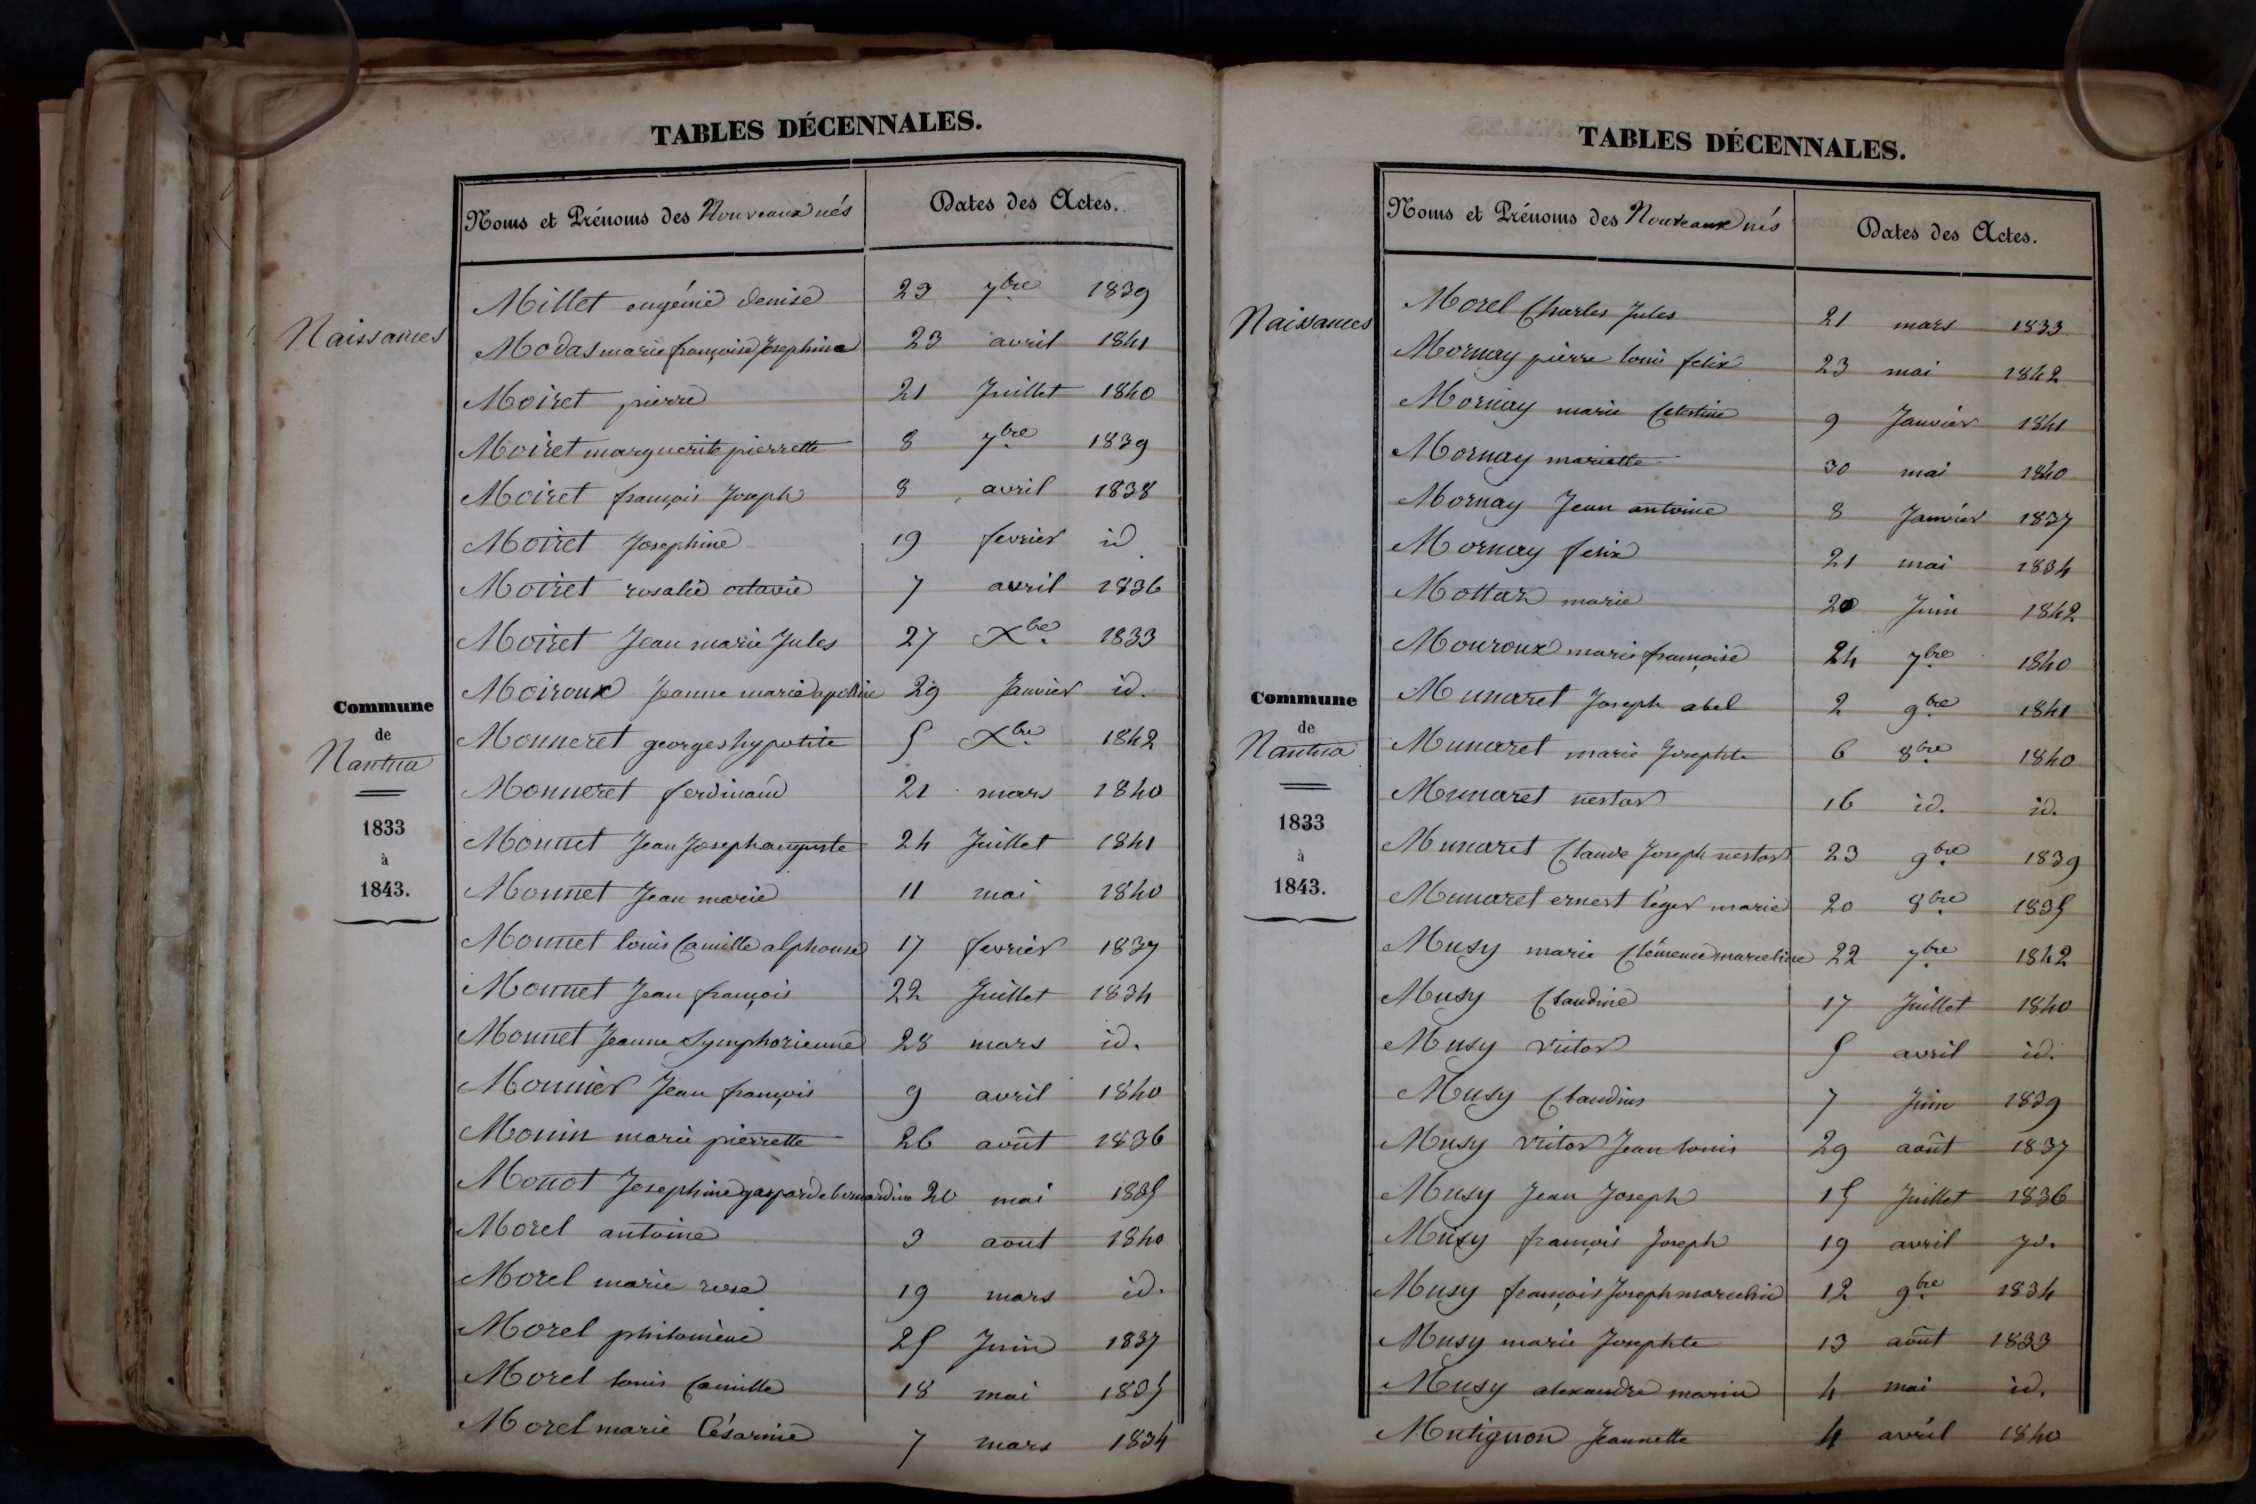 TABLES DÉCENNALES.
Noms et Prénoms des Nouveaux nés Dates des Actes.
Naissances
Commune
de
Nantua
1833
à
1843.
Millet eugénie denise 29 7bre 1839
Modas marie françoise Josephine 23 avril 1841
Moiret pierre 21 Juillet 1840
Moiret marguerite pierrette 8 7bre 1839
Moiret françois Joseph 8 avril 1838
Moiret Josephine 19 fevrier id
Moiret rosalie octavie 7 avril 1836
Moiret Jean marie Jules 27 Xbre 1833
Moiroux Jeanne marie apolline 29 Janvier id.
Monneret georges hypolite 5 Xbre 1842
Monneret ferdinand 21 mars 1840
Monnet Jean Joseph auguste 24 Juillet 1841
Monnet Jean marie 11 mai 1840
Monnet louis Camille alphonse 17 fevrier 1837
Monnet Jean françois 22 Juillet 1834
Monnet Jeanne Symphorienne 28 mars id.
Monnier Jean françois 9 avril 1840
Monin marie pierrette 26 août 1836
Monot Josephine gasparde bernardine 20 mai 1835
Morel antoine 3 aout 1840
Morel marie rose 19 mars id.
Morel philomène 25 Juin 1837
Morel louis Camille 18 mai 1835
Morel marie Césarine 7 mars 1834
TABLES DÉCENNALES.
Noms et Prénoms des Nouveaux nés Dates des Actes.
Naissances
Commune
de
Nantua
1833
à
1843.
Morel Charles Jules 21 mars 1833
Mornay pierre louis felix 23 mai 1842
Mornay marie Celestine 9 Janvier 1841
Mornay mariette 30 mai 1840
Mornay Jean antoine 8 Janvier 1837
Mornay felix 21 mai 1834
Mottaz marie 20 Juin 1842
Mouroux marie françoise 24 7bre 1840
Munaret Joseph abel 2 9bre 1841
Munaret marie Josephte 6 8bre 1840
Munaret nestor 16 id. id.
Munaret Claude Joseph nestor 23 9bre 1839
Munaret ernest léger marie 20 8bre 1835
Musy marie Clémence marceline 22 7bre 1842
Musy Claudine 17 Juillet 1840
Musy victor 5 avril id.
Musy Claudius 7 Juin 1839
Musy victor Jean louis 29 août 1837
Musy Jean Joseph 15 Juillet 1836
Musy françois Joseph 19 avril id.
Musy françois Joseph marcelin 12 9bre 1834
Musy marie Josephte 13 août 1833
Musy alexandre marin 4 mai id.
Mutignon Jeannette 4 avril 1840